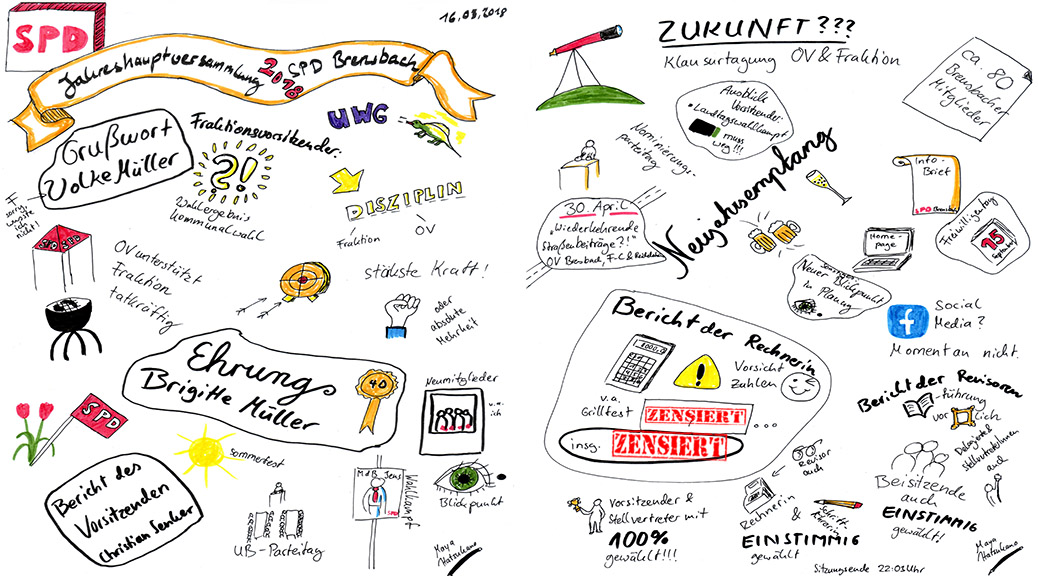 SPD
16.03.2018
Jahreshauptversammlung 2018 SPD Brensbach
Grußwort
Volke Müller
F
sorry,
wusste
ich
nicht!
Fraktionsvorsitzender:
?!
Wahlergebnis
Kommunalwahl
UWG
DISZIPLIN
Fraktion
OV
SPD SPD
OV unterstützt
Fraktion
tatkräftig
stärkste Kraft!
oder
absolute
Mehrheit
Ehrung
Brigitte Müller
40
Neumitglieder
u.a.
ich
SPD
Sommerfest
Bericht des
Vorsitzenden
Christian Senker
UB-Parteitag
MdB Jens
SPD
Wahlkampf
Blickpunkt
Maya
Hatsukano
ZUKUNFT???
Klausurtagung OV & Fraktion
ca. 80
Brensbacher
Mitglieder
Ausblick
Vorsitzender:
• Landtagswahlkampf
muss
weg!!!
Nominierungs-
parteitag
Neujahrsempfang
30. April
"Wiederkehrende
Straßenbeiträge?!"
OV Brensbach, F-C & Reichelsheim
Info-
Brief
SPD Brensbach
Freiwilligentag
15
September
Home-
page
Neuer Blickpunkt
in Planung
f
Social
Media?
Momentan nicht.
Bericht der Rechnerin
1000,0
!
Vorsicht
Zahlen
v.a.
Grillfest
ZENSIERT
...
insg. ZENSIERT
Bericht der Revisoren
-führung
vor lich
Revisor
auch
Delegierte &
stellvertreterInnen
auch
Beisitzende
auch
EINSTIMMIG
gewählt!
Vorsitzender &
Stellvertreter mit
100%
gewählt!!!
Rechnerin
&
Schrift-
führerin
EINSTIMMIG
gewählt
Maya
Hatsukano
Sitzungsende 22:03 Uhr